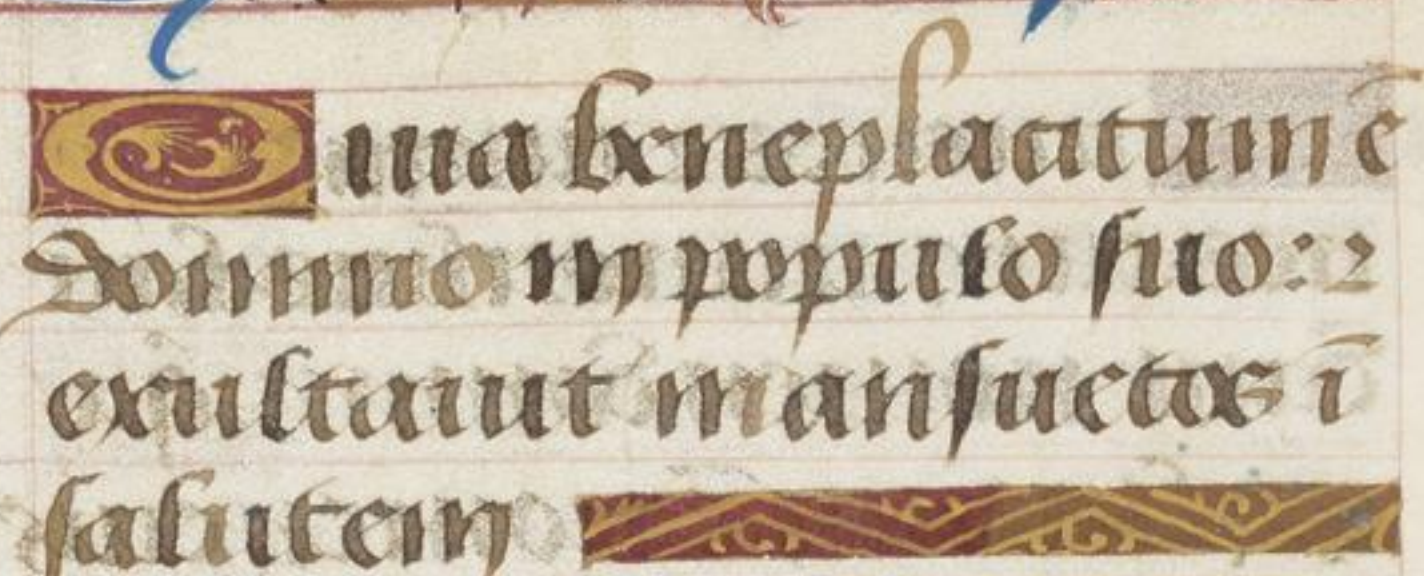 Quia beneplacitum ē
domino in populo suo: ⁊
exultauit mansuetos ī
salutem